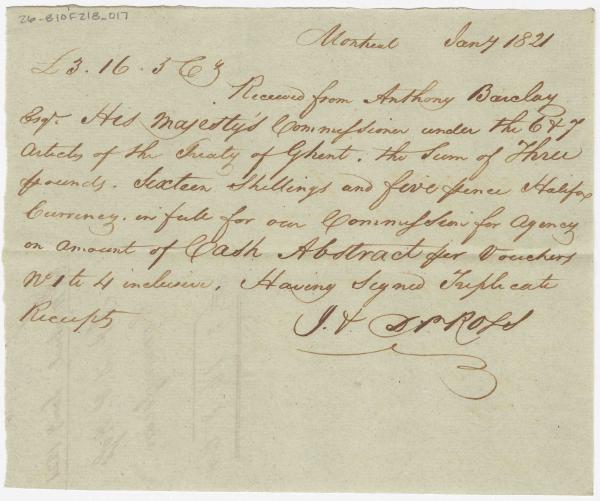 26-B10F21B_017
Montreal Jany 1821
£3.16.5 Cy
Received from Anthony Barclay
Esqr. His Majesty's Commissioner under the 6 & 7
Articles of the Treaty of Ghent. the Sum of Three
pounds. Sixteen Shillings and five pence Halifax
Currency. in full for our Commission for Agency
on amount of Cash Abstract per Vouchers
No 1 to 4 inclusive. Having Signed Triplicate
Receipts
J. & Dd Ross